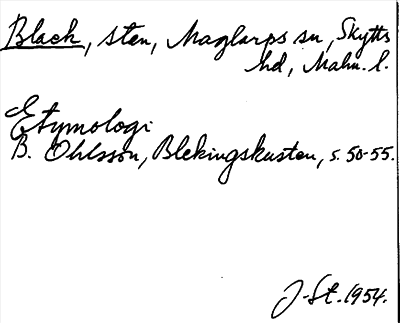 Black, sten, Maglarps sn, Skytts
hd, Malm. l.
Etymologi
B. Ohlsson, Blekingskusten, s. 50-55.
J-St. 1954.